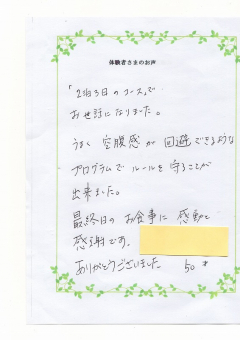 体験者さまのお声
「2泊3日のコース」で
お世話になりました。
うまく 空腹感が 回避できるような
プログラムで ルールを守ることが
出来ました。
最終日の お食事に 感動と
感謝です。
ありがとうございました 50才